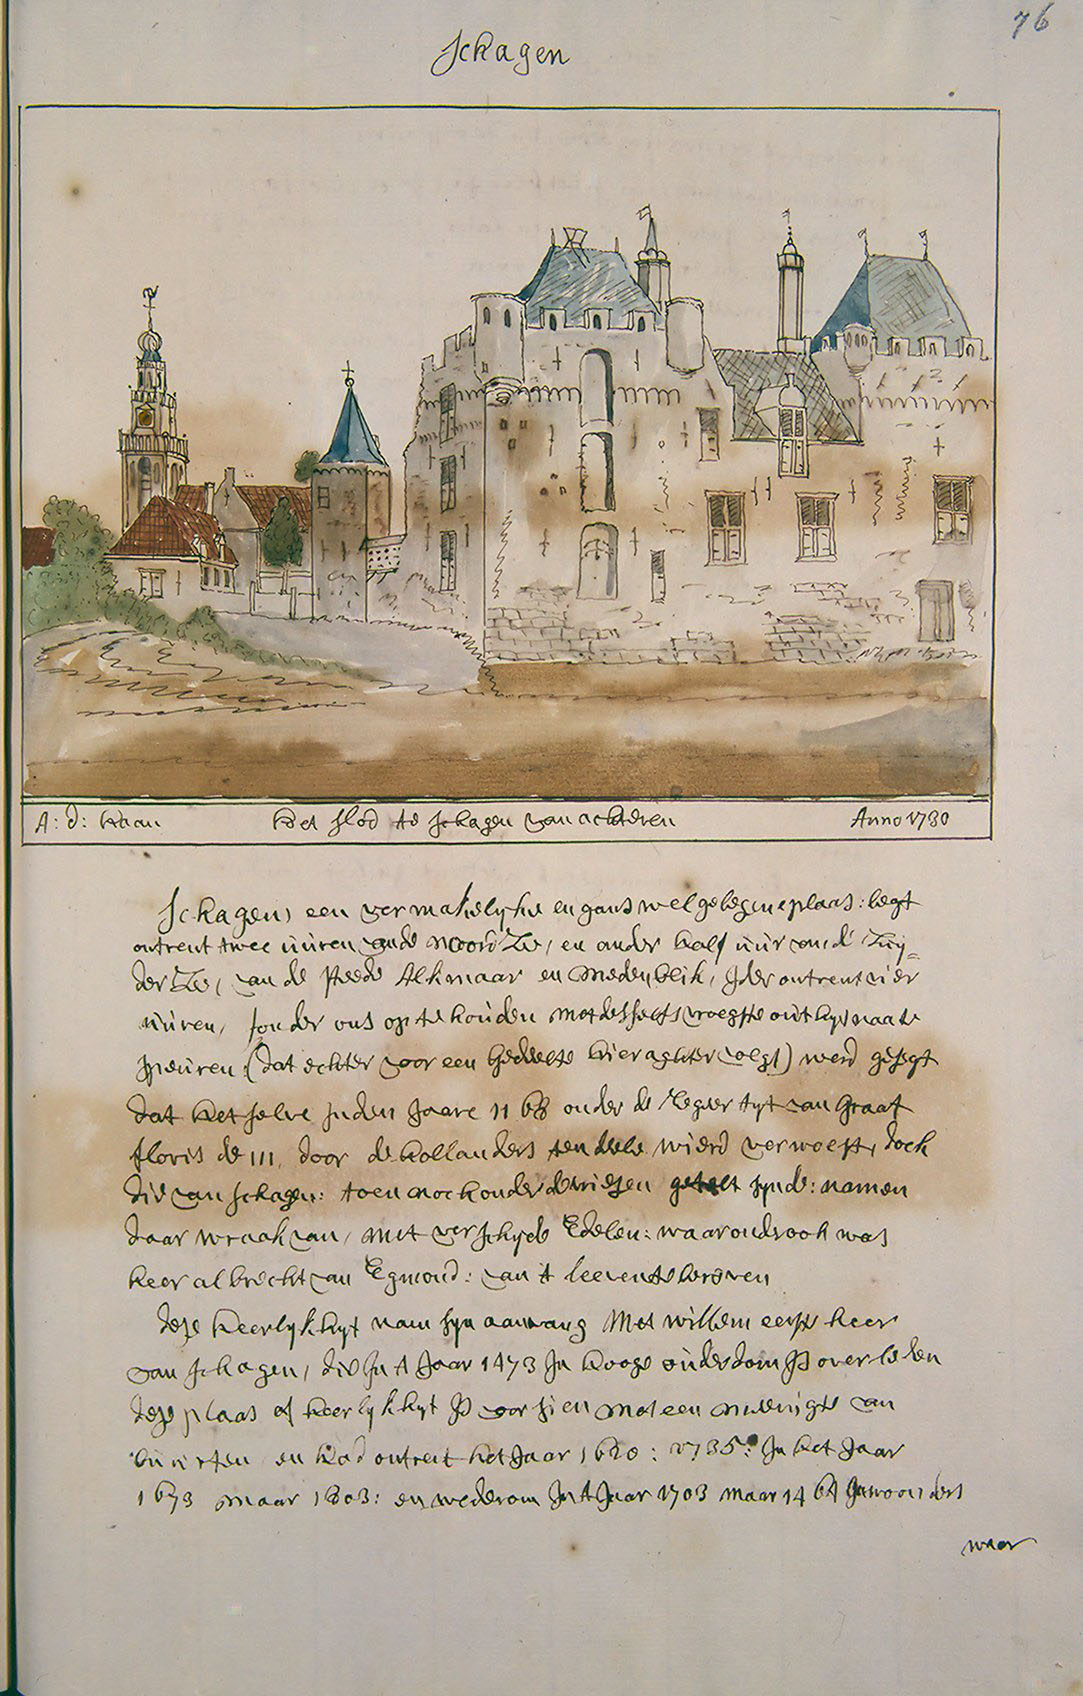 76
Schagen
A: d: Haan Het slod te schagen van achteren Anno 1730
Schagen, een vermakelyke en gans wel gelegene plaas: legt
ontrent twee uuren van de Noord Zee, en ander half uur van d' Zuy=
der Zee, van de steede Alkmaar en Medenblik, Jder ontrent vier
uuren, sonder ons op te houden met desselfs vroegste outhyt naa te
speuren (dat echter voor een gedeelte hier aghter volgt) werd gesegt
dat het selve Jn den Jaare 1168 onder de Regeer tyt van Graaf
floris de III, door de hollanders ten deele wierd verwoest, doch
die van schagen: toen noch onder de vriesen getelt synde: namen
daar wraak van, met verschyde Edelen: waar onder ook was
heer albrecht van Egmond: van 't leeven te beroven
deze heerlykhyt nam syn aanvang Met willem eerste heer
van schagen, die Jn 't Jaar 1473 Jn hooge ouderdom Js overleden
deze plaas of heerlykhyt Js voorsien met een meenigte van
buurten en had ontrent het Jaar 1620: 1735: Jn het Jaar
1673 maar 1803: en wederom Jn 't Jaar 1703 maar 1464 Jnwoonders
waar